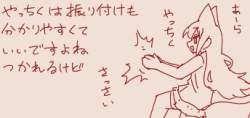 やっちくは振り付けも
分かりやすくて
いいですよね
つかれるけど
あーら
やっちく
さっさい